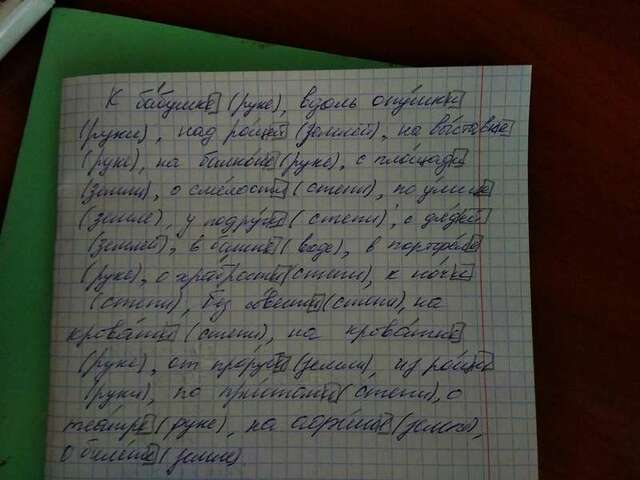 К бабушке (руке), вдоль опушки
(руки), над рощей (землёй), на выставке
(руке), на балконе (руке), с площади
(земли), о смелости (степи), по улице
(земле), у подруги (степи), с дядей
(землей), в башне (воде), в портфеле
(руке), о храбрости (степи), к ночи
(степи), без вести (степи), на
кровати (степи), на кроватке
(руке), от проруби (земли), из рощи
(руки), по пристани (степи), о
театре (руке), на
о билете (земле)